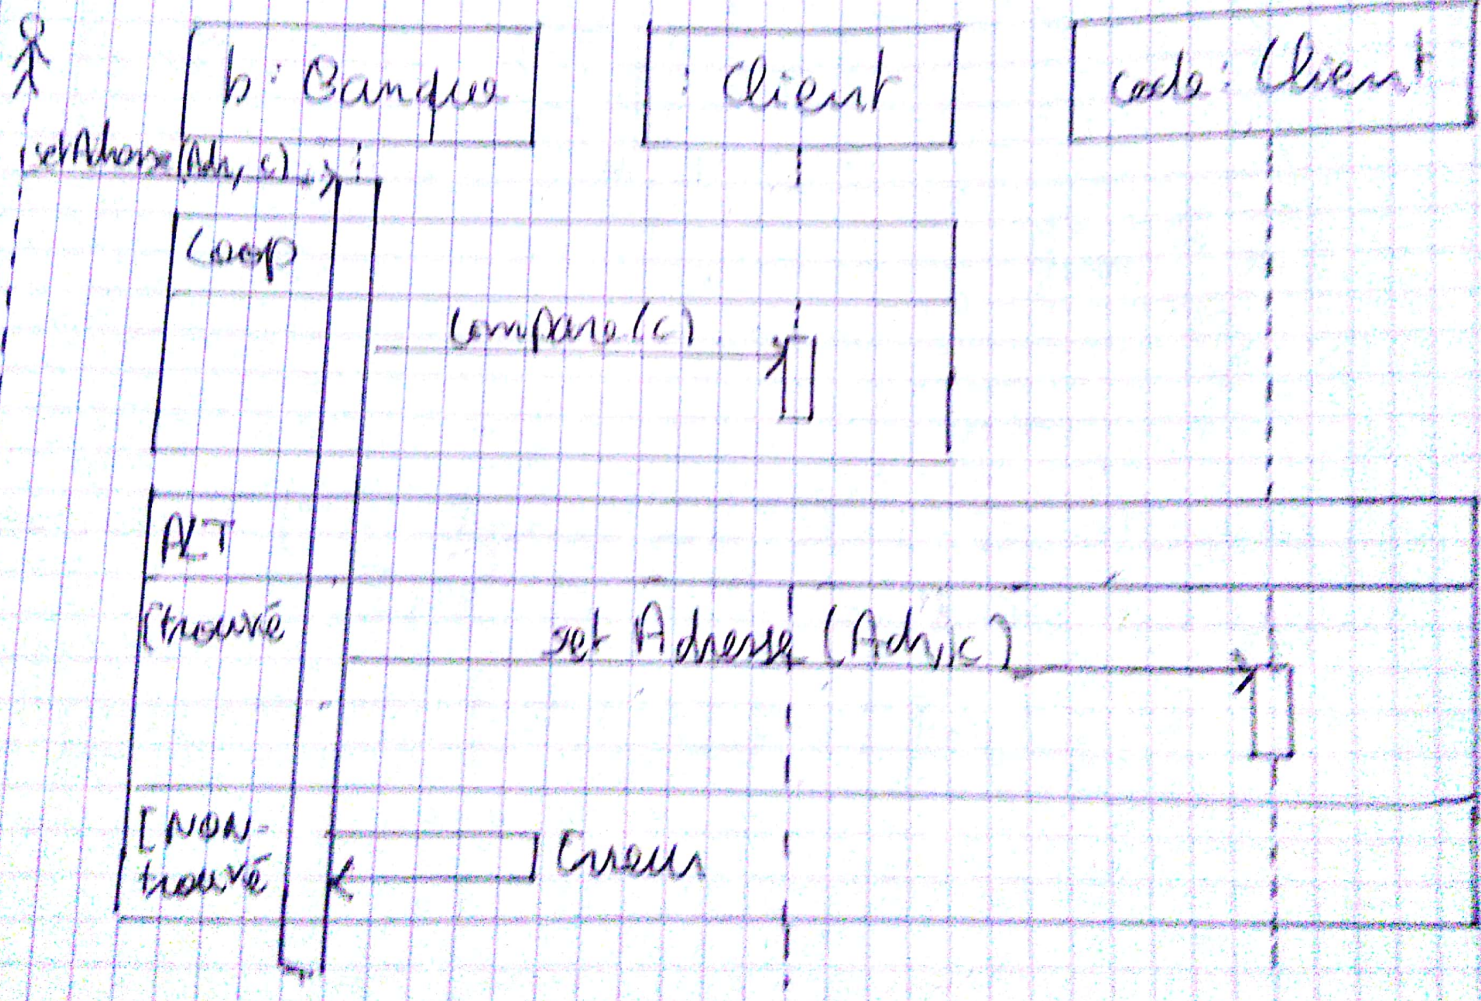 b : Banque
: Client
code : Client
setAdresse(Adr, c)
Loop
Compare(c)
ALT
[trouvé
set Adresse (Adr, c)
[NON-
trouvé
Erreur